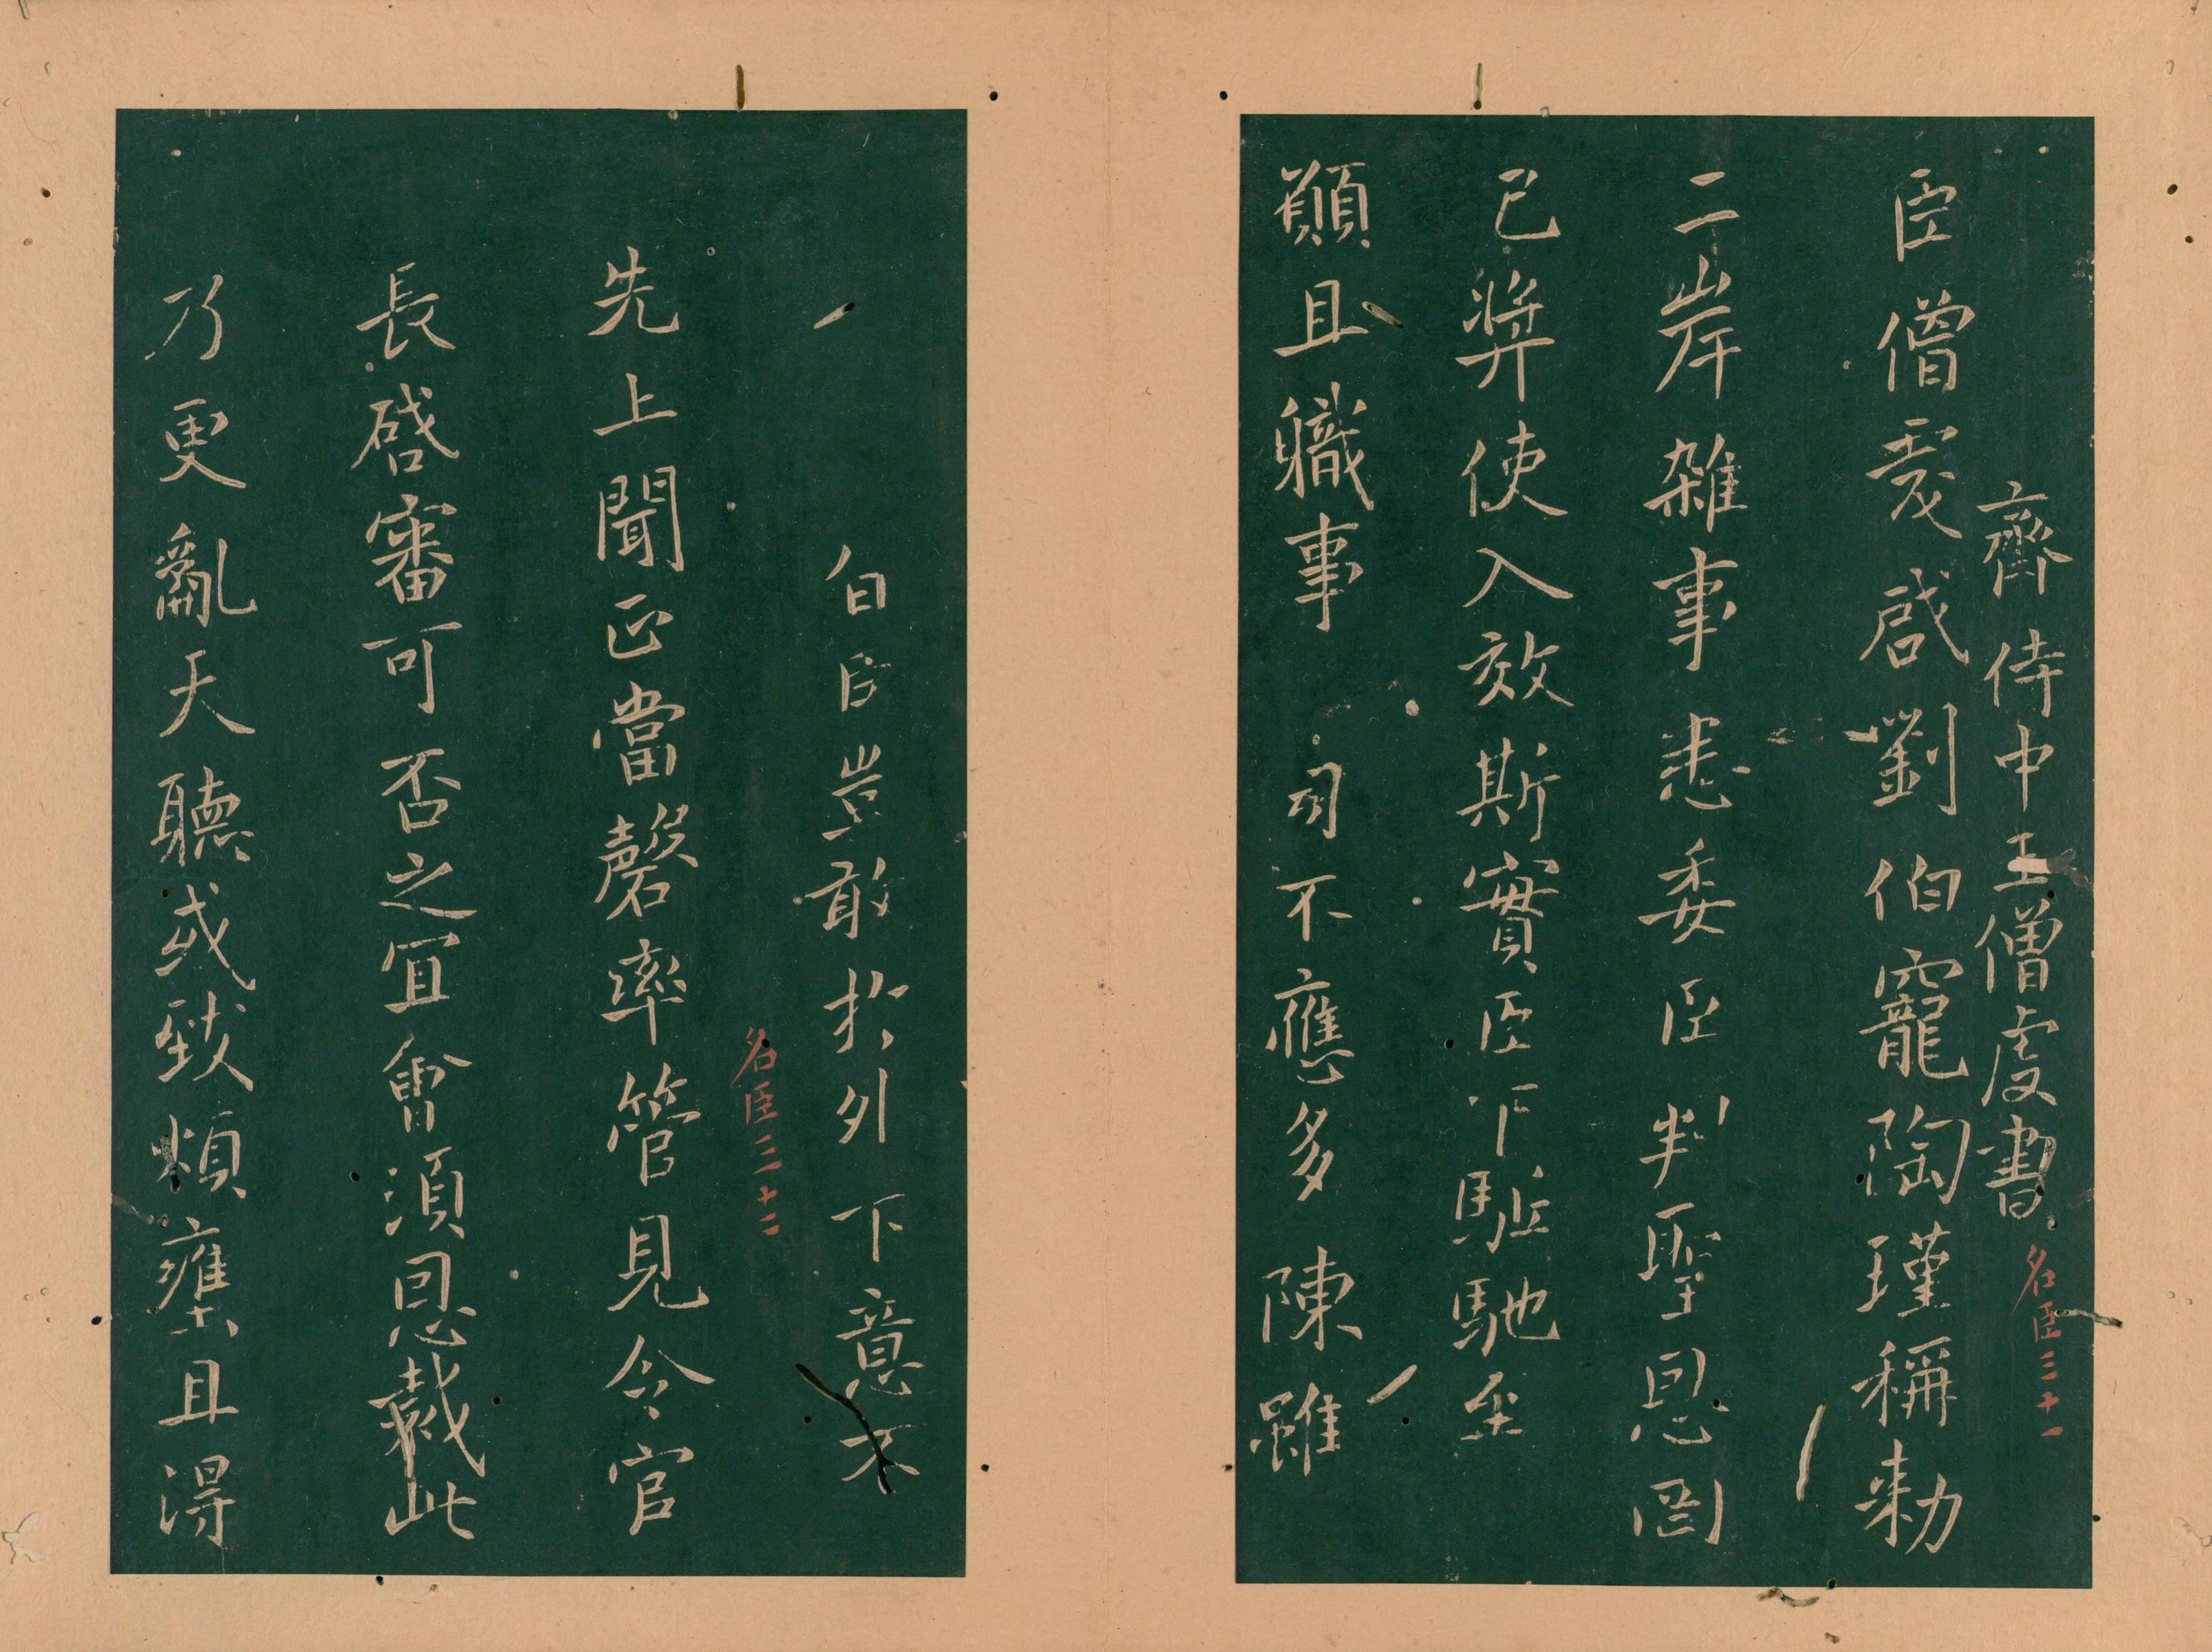 齊侍中王僧虔書
名臣三十一
臣僧虔啓劉伯寵陶瑾稱勅
二岸雜事悉委臣判聖恩罔
已奬使入效斯實臣下駈馳至
願且職事司不應多陳雖
自臣豈敢於外下意不
名臣三十二
先上聞正當罄率管見令官
長啓審可否之宜會湏恩裁此
乃更亂天聽或致煩壅且得